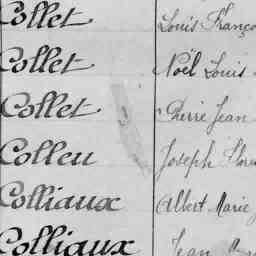 Collet Louis Franço
Collet Noël Louis
Collet Pierre Jean
Colleu Joseph Flore
Colliaux Albert Marie
Colliaux Jean